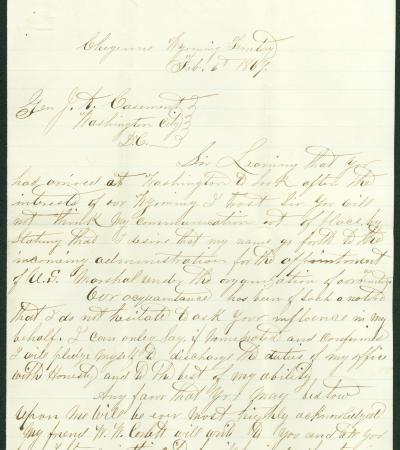 Cheyenne Wyoming Territy
Feb. 6th 1869.
Gen J. A. Casement
Washington City
D.C.
Sir Learning that You
has arrived at Washington to look after the
interests of our Wyoming I trust Sir You will
not think My communication out of place by
Stating that I desire that my name go forth to the
incoming administration for the appointment
of U.S. Marshal under the organization of our
Our acquaintance has been of such a nature
that I do not hesitate to ask your influence in my
behalf. I can only Say if Nominated and Confirmed
I will pledge Myself to discharge the duties of my office
with Honesty and to the best of my ability.
Any favor that You may bestow
Upon Me Will be ever most highly acknowledged
My friend W. W. Corlett will write to You and ask You